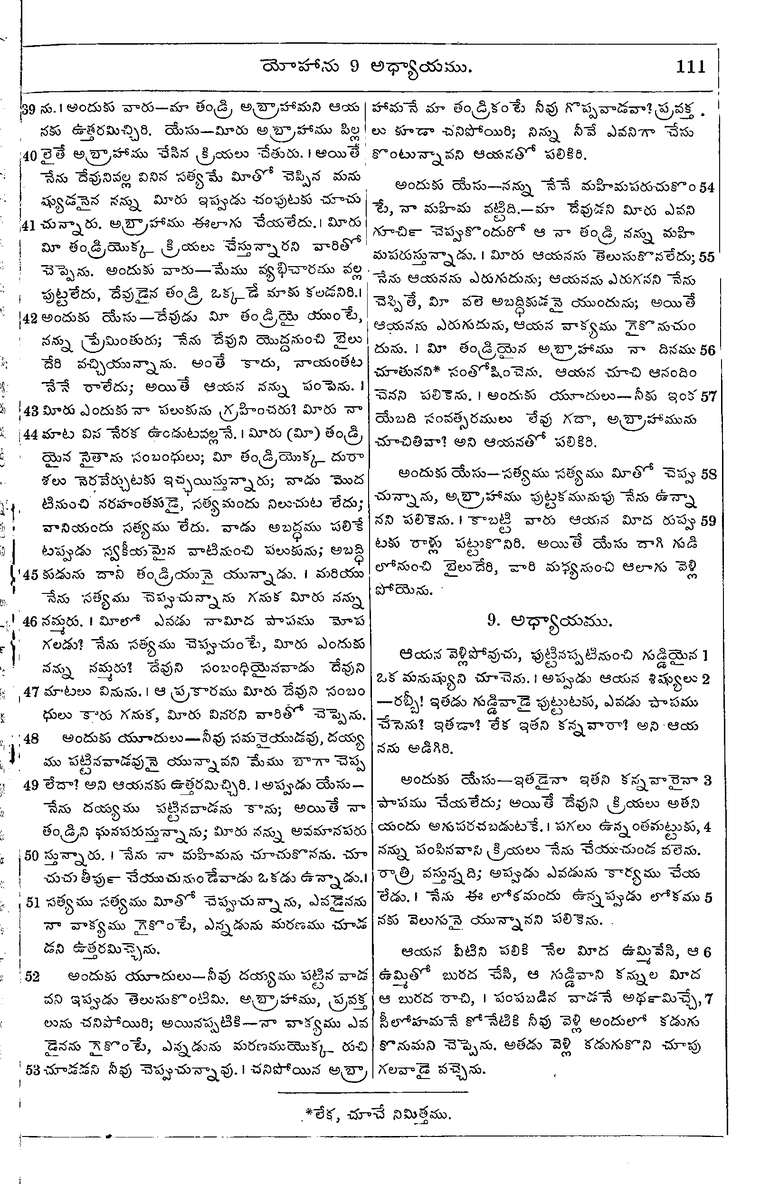 యోహాను 9 అధ్యాయము. 111
39 ను. । అందుకు వారు—మా తండ్రి అబ్రాహామని ఆయ
నకు ఉత్తరమిచ్చిరి. యేసు—మీరు అబ్రాహాము పిల్ల
40 లైతే అబ్రాహాము చేసిన క్రియలు చేతురు. । అయితే
నేను దేవునివల్ల వినిన సత్యమే మీతో చెప్పిన మను
ష్యుడనైన నన్ను మీరు ఇప్పుడు చంపుటకు చూచు
41 చున్నారు. అబ్రాహాము ఈలాగు చేయలేదు. । మీరు
మీ తండ్రియొక్క క్రియలు చేస్తున్నారని వారితో
చెప్పెను. అందుకు వారు—మేము వ్యభిచారము వల్ల
పుట్టలేదు, దేవుడైన తండ్రి ఒక్కడే మాకు కలడనిరి.।
42 అందుకు యేసు—దేవుడు మీ తండ్రియై యుంటే,
నన్ను ప్రేమింతురు; నేను దేవుని యొద్దనుంచి బైలు
దేరి వచ్చియున్నాను. అంతే కాదు, నాయంతట
నేనే రాలేదు; అయితే ఆయన నన్ను పంపెను. ।
43 మీరు ఎందుకు నా పలుకును గ్రహించరు? మీరు నా
44 మాట విన నేరక ఉండుటవల్లనే. । మీరు (మీ) తండ్రి
యైన సైతాను సంబంధులు; మీ తండ్రియొక్క దురా
శలు నెరవేర్చుటకు ఇచ్ఛయిస్తున్నారు; వాడు మొద
టినుంచి నరహంతకుడై, సత్యమందు నిలుచుట లేదు;
వానియందు సత్యము లేదు. వాడు అబద్ధము పలికే
టప్పుడు స్వకీయమైన వాటినుంచి పలుకును; అబద్ధి
45 కుడును దాని తండ్రియునై యున్నాడు. । మరియు
నేను సత్యము చెప్పుచున్నాను గనుక మీరు నన్ను
46 నమ్మరు. । మీలో ఎవడు నామీద పాపము మోప
గలడు? నేను సత్యము చెప్పుచుంటే, మీరు ఎందుకు
నన్ను నమ్మరు? దేవుని సంబంధియైనవాడు దేవుని
47 మాటలు వినును. । ఆ ప్రకారము మీరు దేవుని సంబం
ధులు కారు గనుక, మీరు వినరని వారితో చెప్పెను.
48 అందుకు యూదులు—నీవు సమరైయుడవు, దయ్య
ము పట్టినవాడవునై యున్నావని మేము బాగా చెప్ప
49 లేదా? అని ఆయనకు ఉత్తరమిచ్చిరి. । అప్పుడు యేసు—
నేను దయ్యము పట్టినవాడను కాను; అయితే నా
తండ్రిని ఘనపరుస్తున్నాను; మీరు నన్ను అవమానపరు
50 స్తున్నారు. । నేను నా మహిమను చూచుకొనను. చూ
చుచు తీర్పు చేయుచునుండేవాడు ఒకడు ఉన్నాడు.।
51 సత్యము సత్యము మీతో చెప్పుచున్నాను, ఎవడైనను
నా వాక్యము గైకొంటే, ఎన్నడును మరణము చూడ
డని ఉత్తరమిచ్చెను.
52 అందుకు యూదులు—నీవు దయ్యము పట్టిన వాడ
వని ఇప్పుడు తెలుసుకొంటిమి. అబ్రాహాము, ప్రవక్త
లును చనిపోయిరి; అయినప్పటికి—నా వాక్యము ఎవ
డైనను గైకొంటే, ఎన్నడును మరణముయొక్క రుచి
53 చూడడని నీవు చెప్పుచున్నావు. । చనిపోయిన అబ్రా
హామనే మా తండ్రికంటే నీవు గొప్పవాడవా? ప్రవక్త
లు కూడా చనిపోయిరి; నిన్ను నీవే ఎవనిగా చేసు
కొంటున్నావని ఆయనతో పలికిరి.
అందుకు యేసు—నన్ను నేనే మహిమపరుచుకొం 54
టే, నా మహిమ వట్టిది.—మా దేవుడని మీరు ఎవని
గూర్చి చెప్పుకొందురో ఆ నా తండ్రి నన్ను మహి
మపరుస్తున్నాడు. । మీరు ఆయనను తెలుసుకొనలేదు; 55
నేను ఆయనను ఎరుగుదును; ఆయనను ఎరుగనని నేను
చెప్పితే, మీ వలె అబద్ధికుడనై యుందును; అయితే
ఆయనను ఎరుగుదును, ఆయన వాక్యము గైకొనుచుం
దును. । మీ తండ్రియైన అబ్రాహాము నా దినము 56
చూతునని* సంతోషించెను. ఆయన చూచి ఆనందిం
చెనని పలికెను. । అందుకు యూదులు—నీకు ఇంక 57
యేబది సంవత్సరములు లేవు గదా, అబ్రాహామును
చూచితివా? అని ఆయనతో పలికిరి.
అందుకు యేసు—సత్యము సత్యము మీతో చెప్పు 58
చున్నాను, అబ్రాహాము పుట్టకమునుపు నేను ఉన్నా
నని పలికెను. । కాబట్టి వారు ఆయన మీద రువ్వు 59
టకు రాళ్లు పట్టుకొనిరి. అయితే యేసు దాగి గుడి
లోనుంచి బైలుదేరి, వారి మధ్యనుంచి ఆలాగు వెళ్లి
పోయెను.
9. అధ్యాయము.
ఆయన వెళ్లిపోవుచు, పుట్టినప్పటినుంచి గుడ్డియైన 1
ఒక మనుష్యుని చూచెను. । అప్పుడు ఆయన శిష్యులు 2
—రబ్బీ! ఇతడు గుడ్డివాడై పుట్టుటకు, ఎవడు పాపము
చేసెను? ఇతడా? లేక ఇతని కన్నవారా? అని ఆయ
నను అడిగిరి.
అందుకు యేసు—ఇతడైనా ఇతని కన్నవారైనా 3
పాపము చేయలేదు; అయితే దేవుని క్రియలు అతని
యందు అగుపరచబడుటకే. । పగలు ఉన్నంతమట్టుకు, 4
నన్ను పంపినవాని క్రియలు నేను చేయుచుండ వలెను.
రాత్రి వస్తున్నది; అప్పుడు ఎవడును కార్యము చేయ
లేడు. । నేను ఈ లోకమందు ఉన్నప్పుడు లోకము 5
నకు వెలుగునై యున్నానని పలికెను.
ఆయన వీటిని పలికి నేల మీద ఉమ్మివేసి, ఆ 6
ఉమ్మితో బురద చేసి, ఆ గుడ్డివాని కన్నుల మీద
ఆ బురద రాచి, । పంపబడిన వాడనే అర్థమిచ్చే, 7
సీలోహమనే కోనేటికి నీవు వెళ్లి అందులో కడుగు
కొనుమని చెప్పెను. అతడు వెళ్లి కడుగుకొని చూపు
గలవాడై వచ్చెను.
*లేక, చూచే నిమిత్తము.